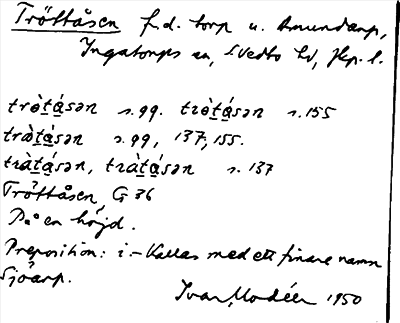 Tröttåsen f.d. torp u. Amundarp,
Ingatorps sn, S. Vedbo hd, Jkp. l.
trøt̠á̠sən s. 99. trøt̠á̠sən s. 155
træ̀t̠á̠sən s. 99, 137, 155.
tràt̠á̠sən, tràt̠á̠sən s. 137
Tröttåsen, G 36
På en höjd.
Preposition: i. – Kallas med ett finare namn
Sjöarp.
Ivar Modéer 1950